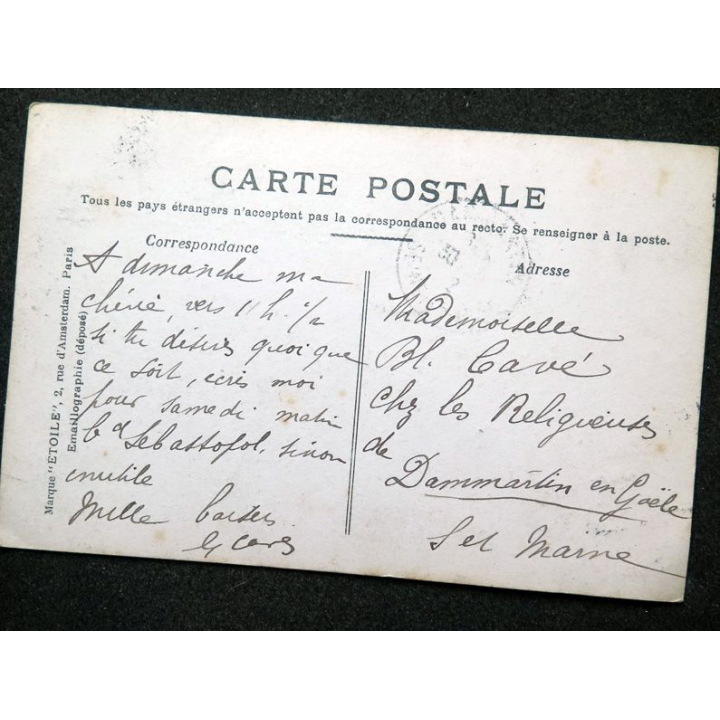 CARTE POSTALE
Tous les pays étrangers n'acceptent pas la correspondance au recto. Se renseigner à la poste.
Correspondance
A dimanche ma
chérie, vers 11 h. 1/2
si tu désires quoi que
ce soit, écris moi
pour samedi matin
bd Sebastopol, sinon
inutile
Mille baisers
Adresse
Mademoiselle
Bl. Cavé
Chez les Religieuses
de
Dammartin en Goële
S et Marne
Marque "ETOILE", 2, rue d'Amsterdam. Paris
Emaillographie (déposé)